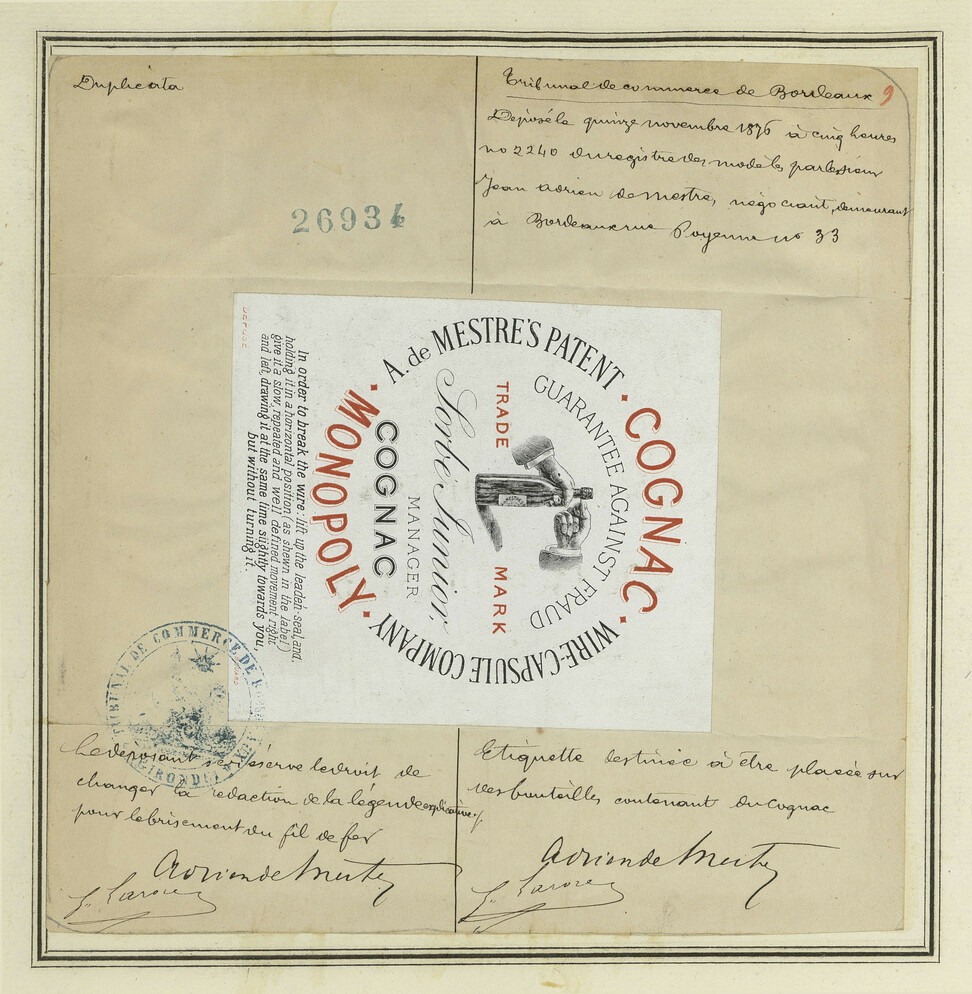 Duplicata
26934
Tribunal de commerce de Bordeaux 9
Déposé le quinze novembre 1876 à cinq heures
no 2240 du registre des modèles par le sieur
Jean Adrien de Mestre, négociant, demeurant
à Bordeaux rue Poyenne no 33
DEPOSE
A. de MESTRE'S PATENT
• COGNAC •
WIRE-CAPSULE COMPANY
• MONOPOLY •
GUARANTEE AGAINST FRAUD
TRADE MARK
MESTRE
Sorbé Junior,
MANAGER
COGNAC
In order to break the wire: lift up the leaden-seal, and,
holding it in a horizontal position (as shewn in the label)
give it a slow, repeated and well defined movement right
and left, drawing it at the same time slightly towards you,
but without turning it.
TRIBUNAL DE COMMERCE DE
GIRONDE
Le déposant se réserve le droit de
changer la rédaction de la légende explicative
pour le brisement du fil de fer
Adrien de Mestre
Etiquette destinée à être placée sur
des bouteilles contenant du Cognac
Adrien de Mestre